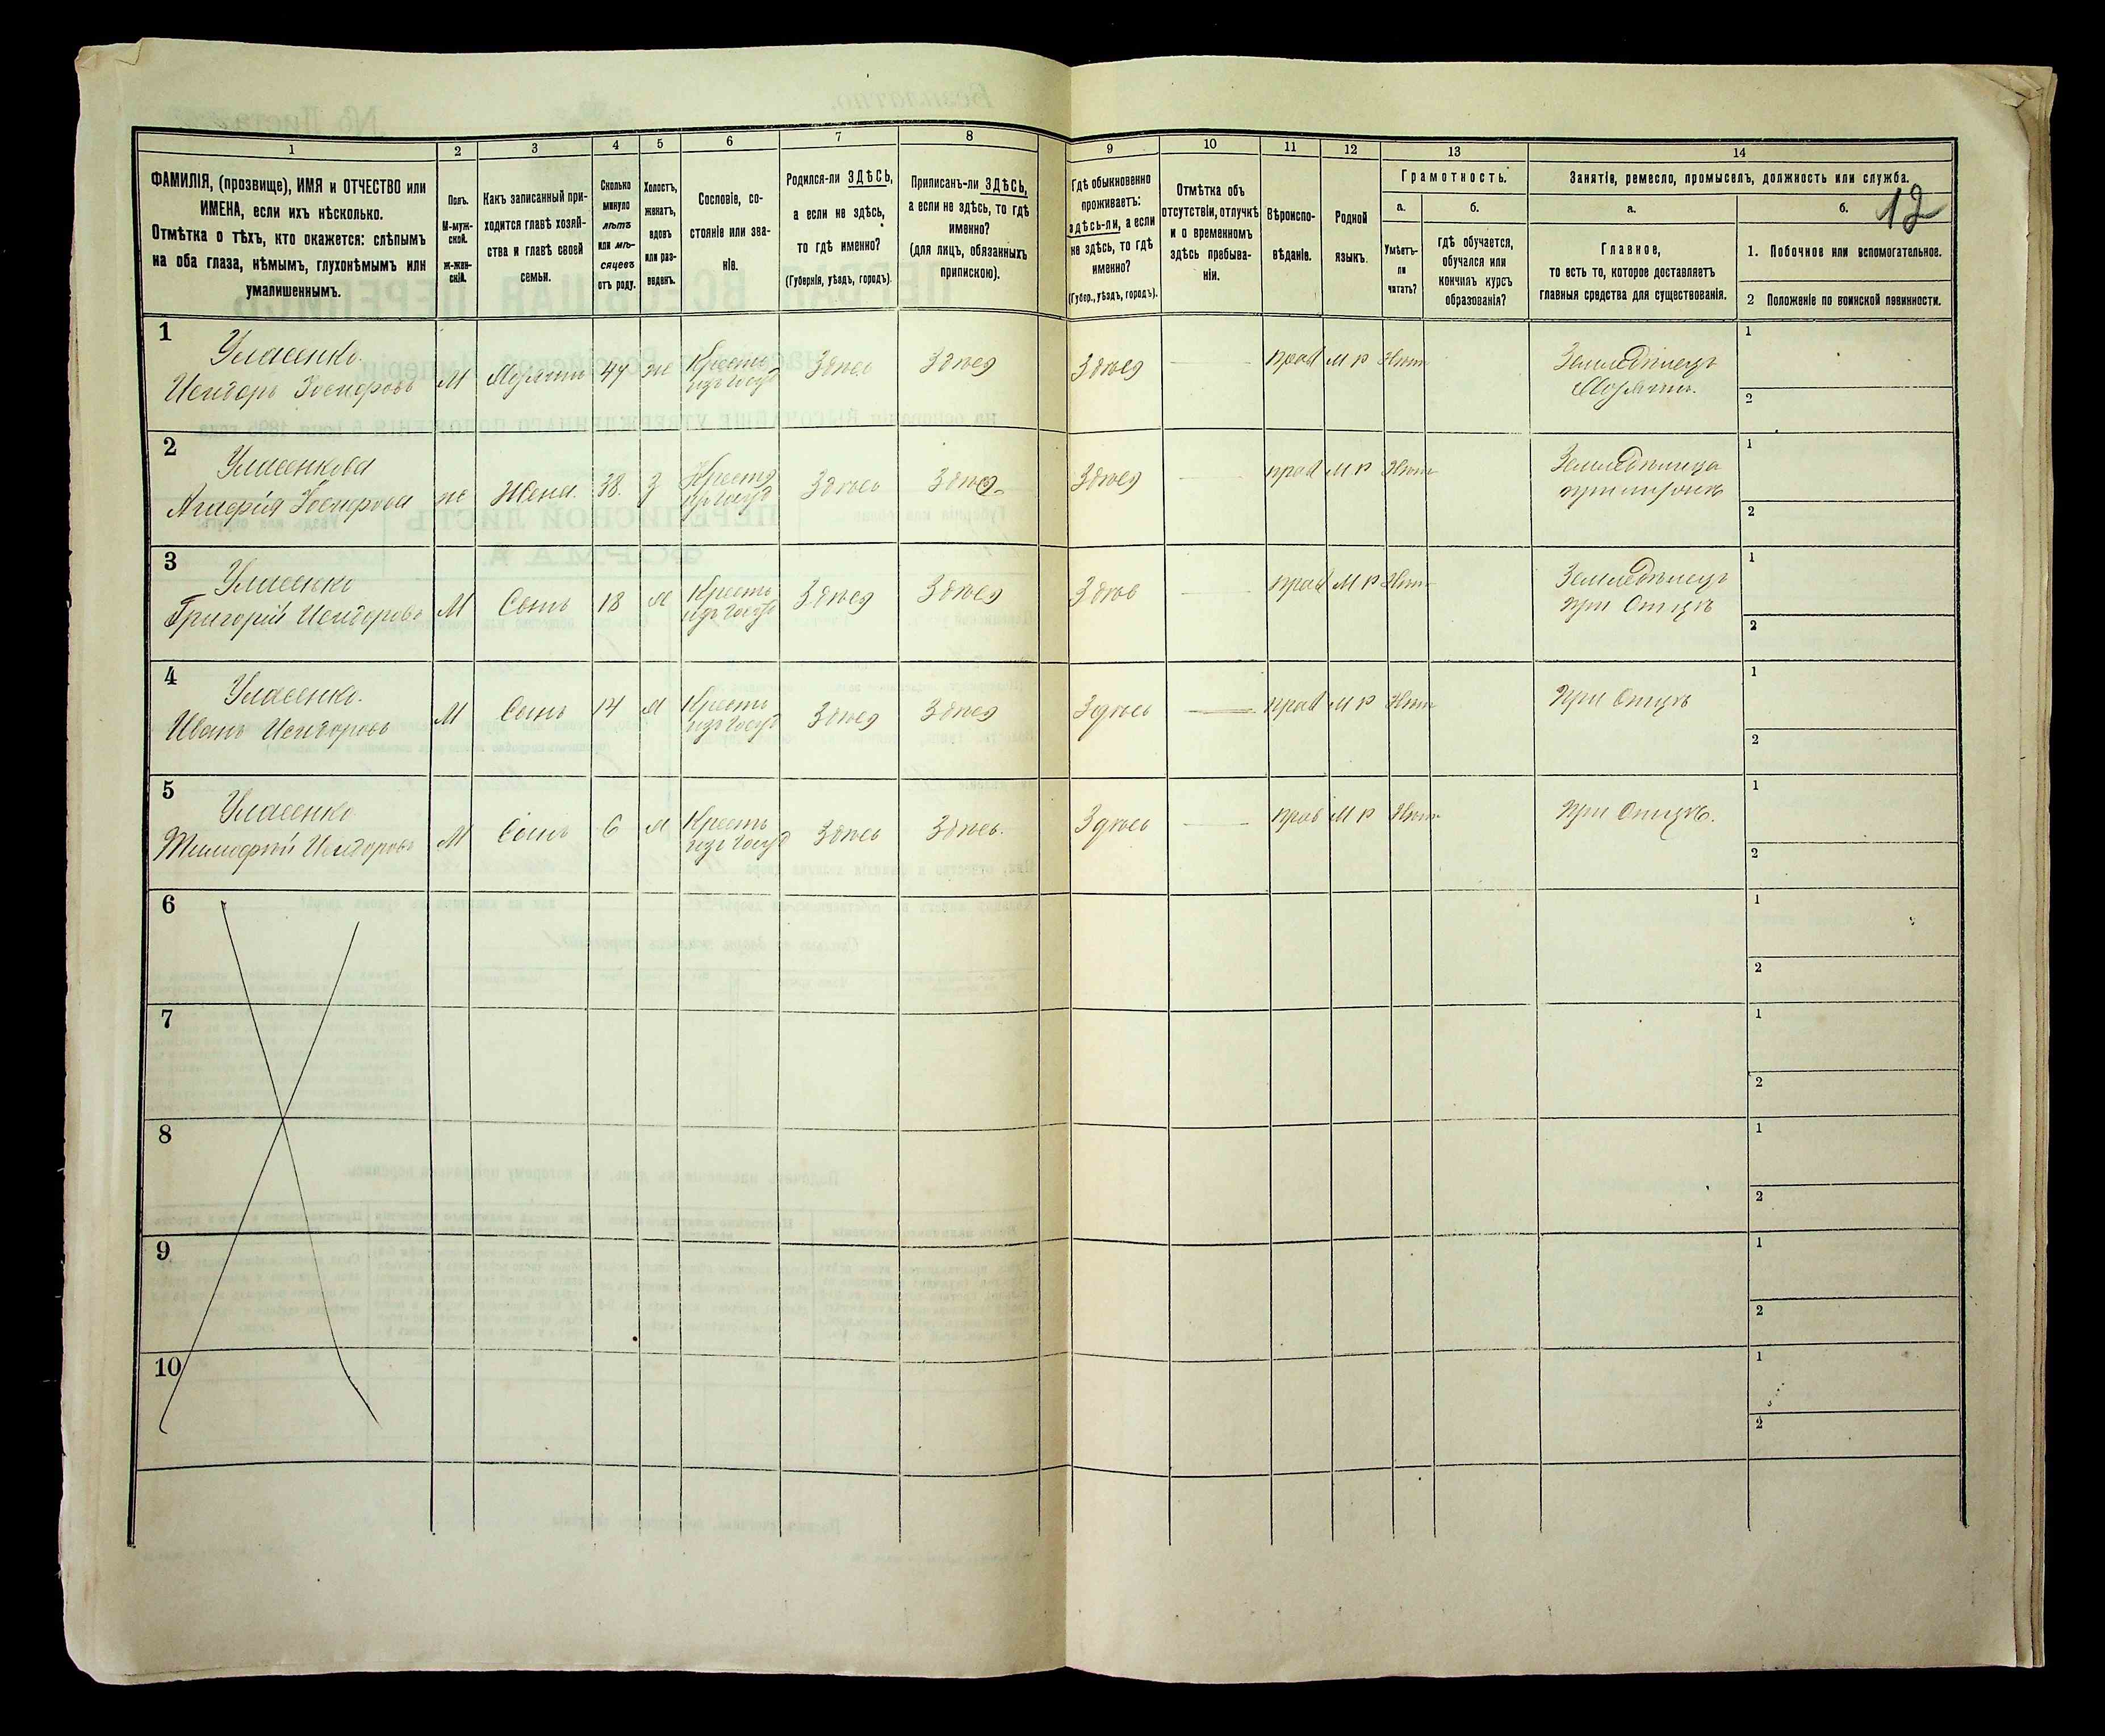 1 2 3 4 5 6 7 8 9 10 11 12 13 14
ФАМИЛІЯ, (прозвище), ИМЯ и ОТЧЕСТВО или
ИМЕНА, если ихъ нѣсколько.
Отмѣтка о тѣхъ, кто окажется: слѣпымъ
на оба глаза, нѣмымъ, глухонѣмымъ или
умалишеннымъ.
Полъ.
М-муж-
ской.
Ж-жен-
скій.
Какъ записанный при-
ходится главѣ хозяй-
ства и главѣ своей
семьи.
Сколько
минуло
лѣтъ
или мѣ-
сяцевъ
отъ роду.
Холостъ,
женатъ,
вдовъ
или раз-
веденъ.
Сословіе, со-
стояніе или зва-
ніе.
Родился-ли ЗДѢСЬ,
а если не здѣсь,
то гдѣ именно?
(Губернія, уѣздъ, городъ).
Приписанъ-ли ЗДѢСЬ,
а если не здѣсь, то гдѣ
именно?
(для лицъ, обязанныхъ
припискою).
Гдѣ обыкновенно
проживаетъ:
здѣсь-ли, а если
не здѣсь, то гдѣ
именно?
(Губер., уѣздъ, городъ).
Отмѣтка объ
отсутствіи, отлучкѣ
и о временномъ
здѣсь пребыва-
ніи.
Вѣроиспо-
вѣданіе.
Родной
языкъ.
Грамотность.
а.
Умѣетъ-
ли
читать?
б.
гдѣ обучается,
обучался или
кончилъ курсъ
образованія?
Занятіе, ремесло, промыселъ, должность или служба.
а.
Главное,
то есть то, которое доставляетъ
главныя средства для существованія.
б.
12
1. Побочное или вспомогательное.
2 Положеніе по воинской повинности.
1
Уласенко
М 47 ж Кресть Здѣсь Здѣсь Здѣсь прав м р Нѣт Земледѣлецъ
изъ госуд Хозяинъ.
1
2
2
Уласенкова
ж Жена. 38. З Кресть Здѣсь Здѣсь Здѣсь прав м р Нѣт
изъ госуд
1
2
3
Уласенко
Григорій М Сынъ 18 Кресть Здѣсь Здѣсь Здѣсь прав м р Нѣт Земледѣлецъ
изъ госуд при Отцѣ
1
2
4
Уласенко
Иванъ М Сынъ 14 Кресть Здѣсь Здѣсь Здѣсь прав м р Нѣт при Отцѣ
изъ госуд
1
2
5
Уласенко
М Сынъ 6 Кресть Здѣсь Здѣсь. Здѣсь прав м р Нѣт при Отцѣ.
изъ госуд
1
2
6
1
2
7
1
2
8
1
2
9
1
2
10
1
2